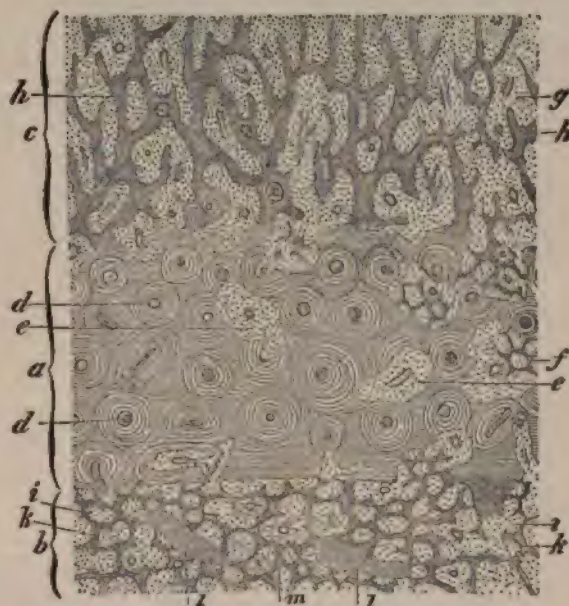 h
g
c
k
d
e
a
f
e
d
i
k
b
i
k
l
m
l